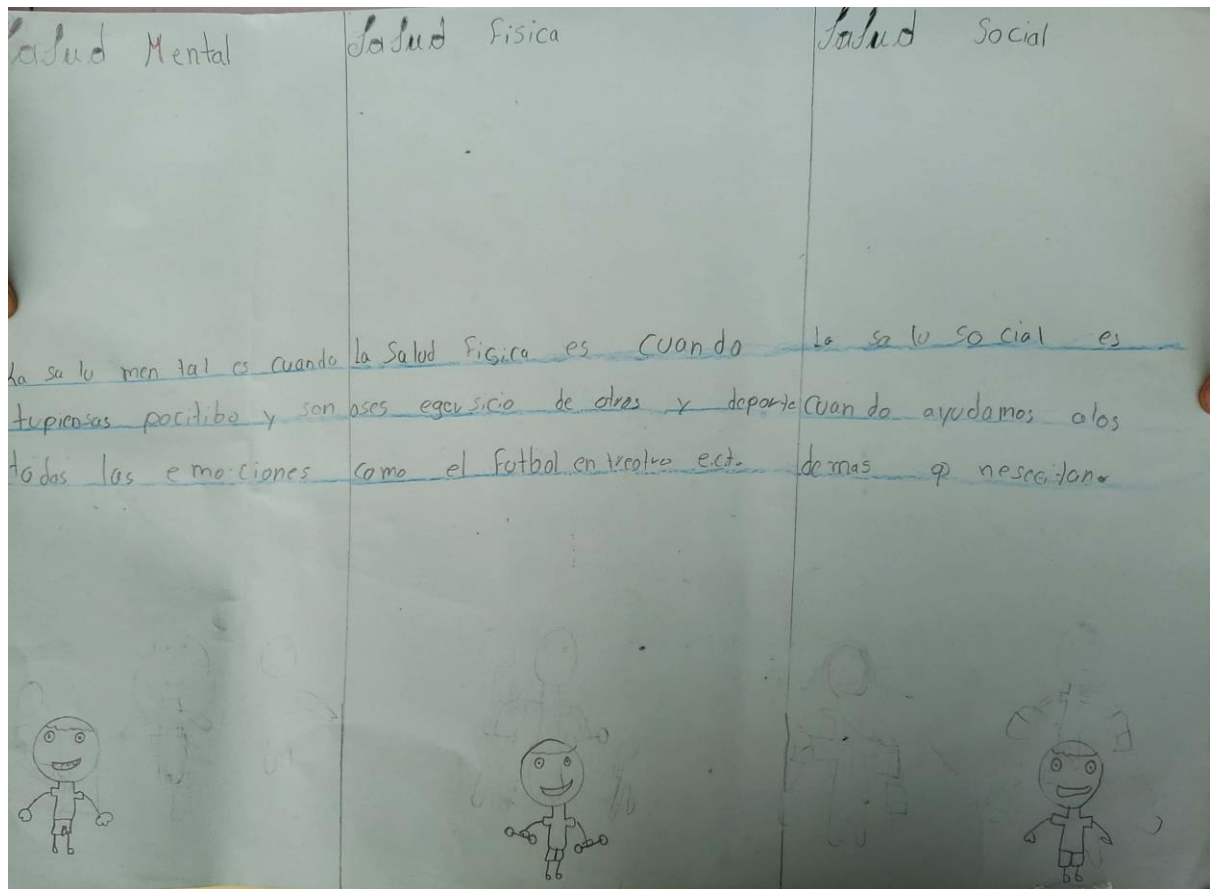 Salud Mental
La salu men tal es cuando
tupiensas pocitibo y son
todas las emociones
Salud Fisica
la Salud Fisica es cuando
ases egersicio de otros y deporte
como el Futbol entreotro ect.
Salud Social
la salu so cial es
cuan do ayudamos alos
demas q nescitan.